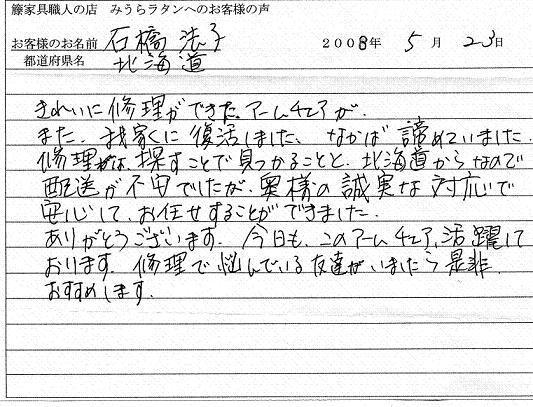 籐家具職人の店　みうらラタンへのお客様の声
お客様のお名前　石橋 浩子　2008年 5月 23日
都道府県名　北海道
きれいに修理ができたアームチェアが、
また、我家くに復活しました、なかば諦めていました
修理がは、探すことで見つかることと、北海道からなので
配送が不安でしたが、奥様の誠実な対応で
安心して、お任せすることができました。
ありがとうございます。今日も、このアームチェア、活躍して
おります。修理で悩んでいる友達がいましたら是非、
おすすめします。